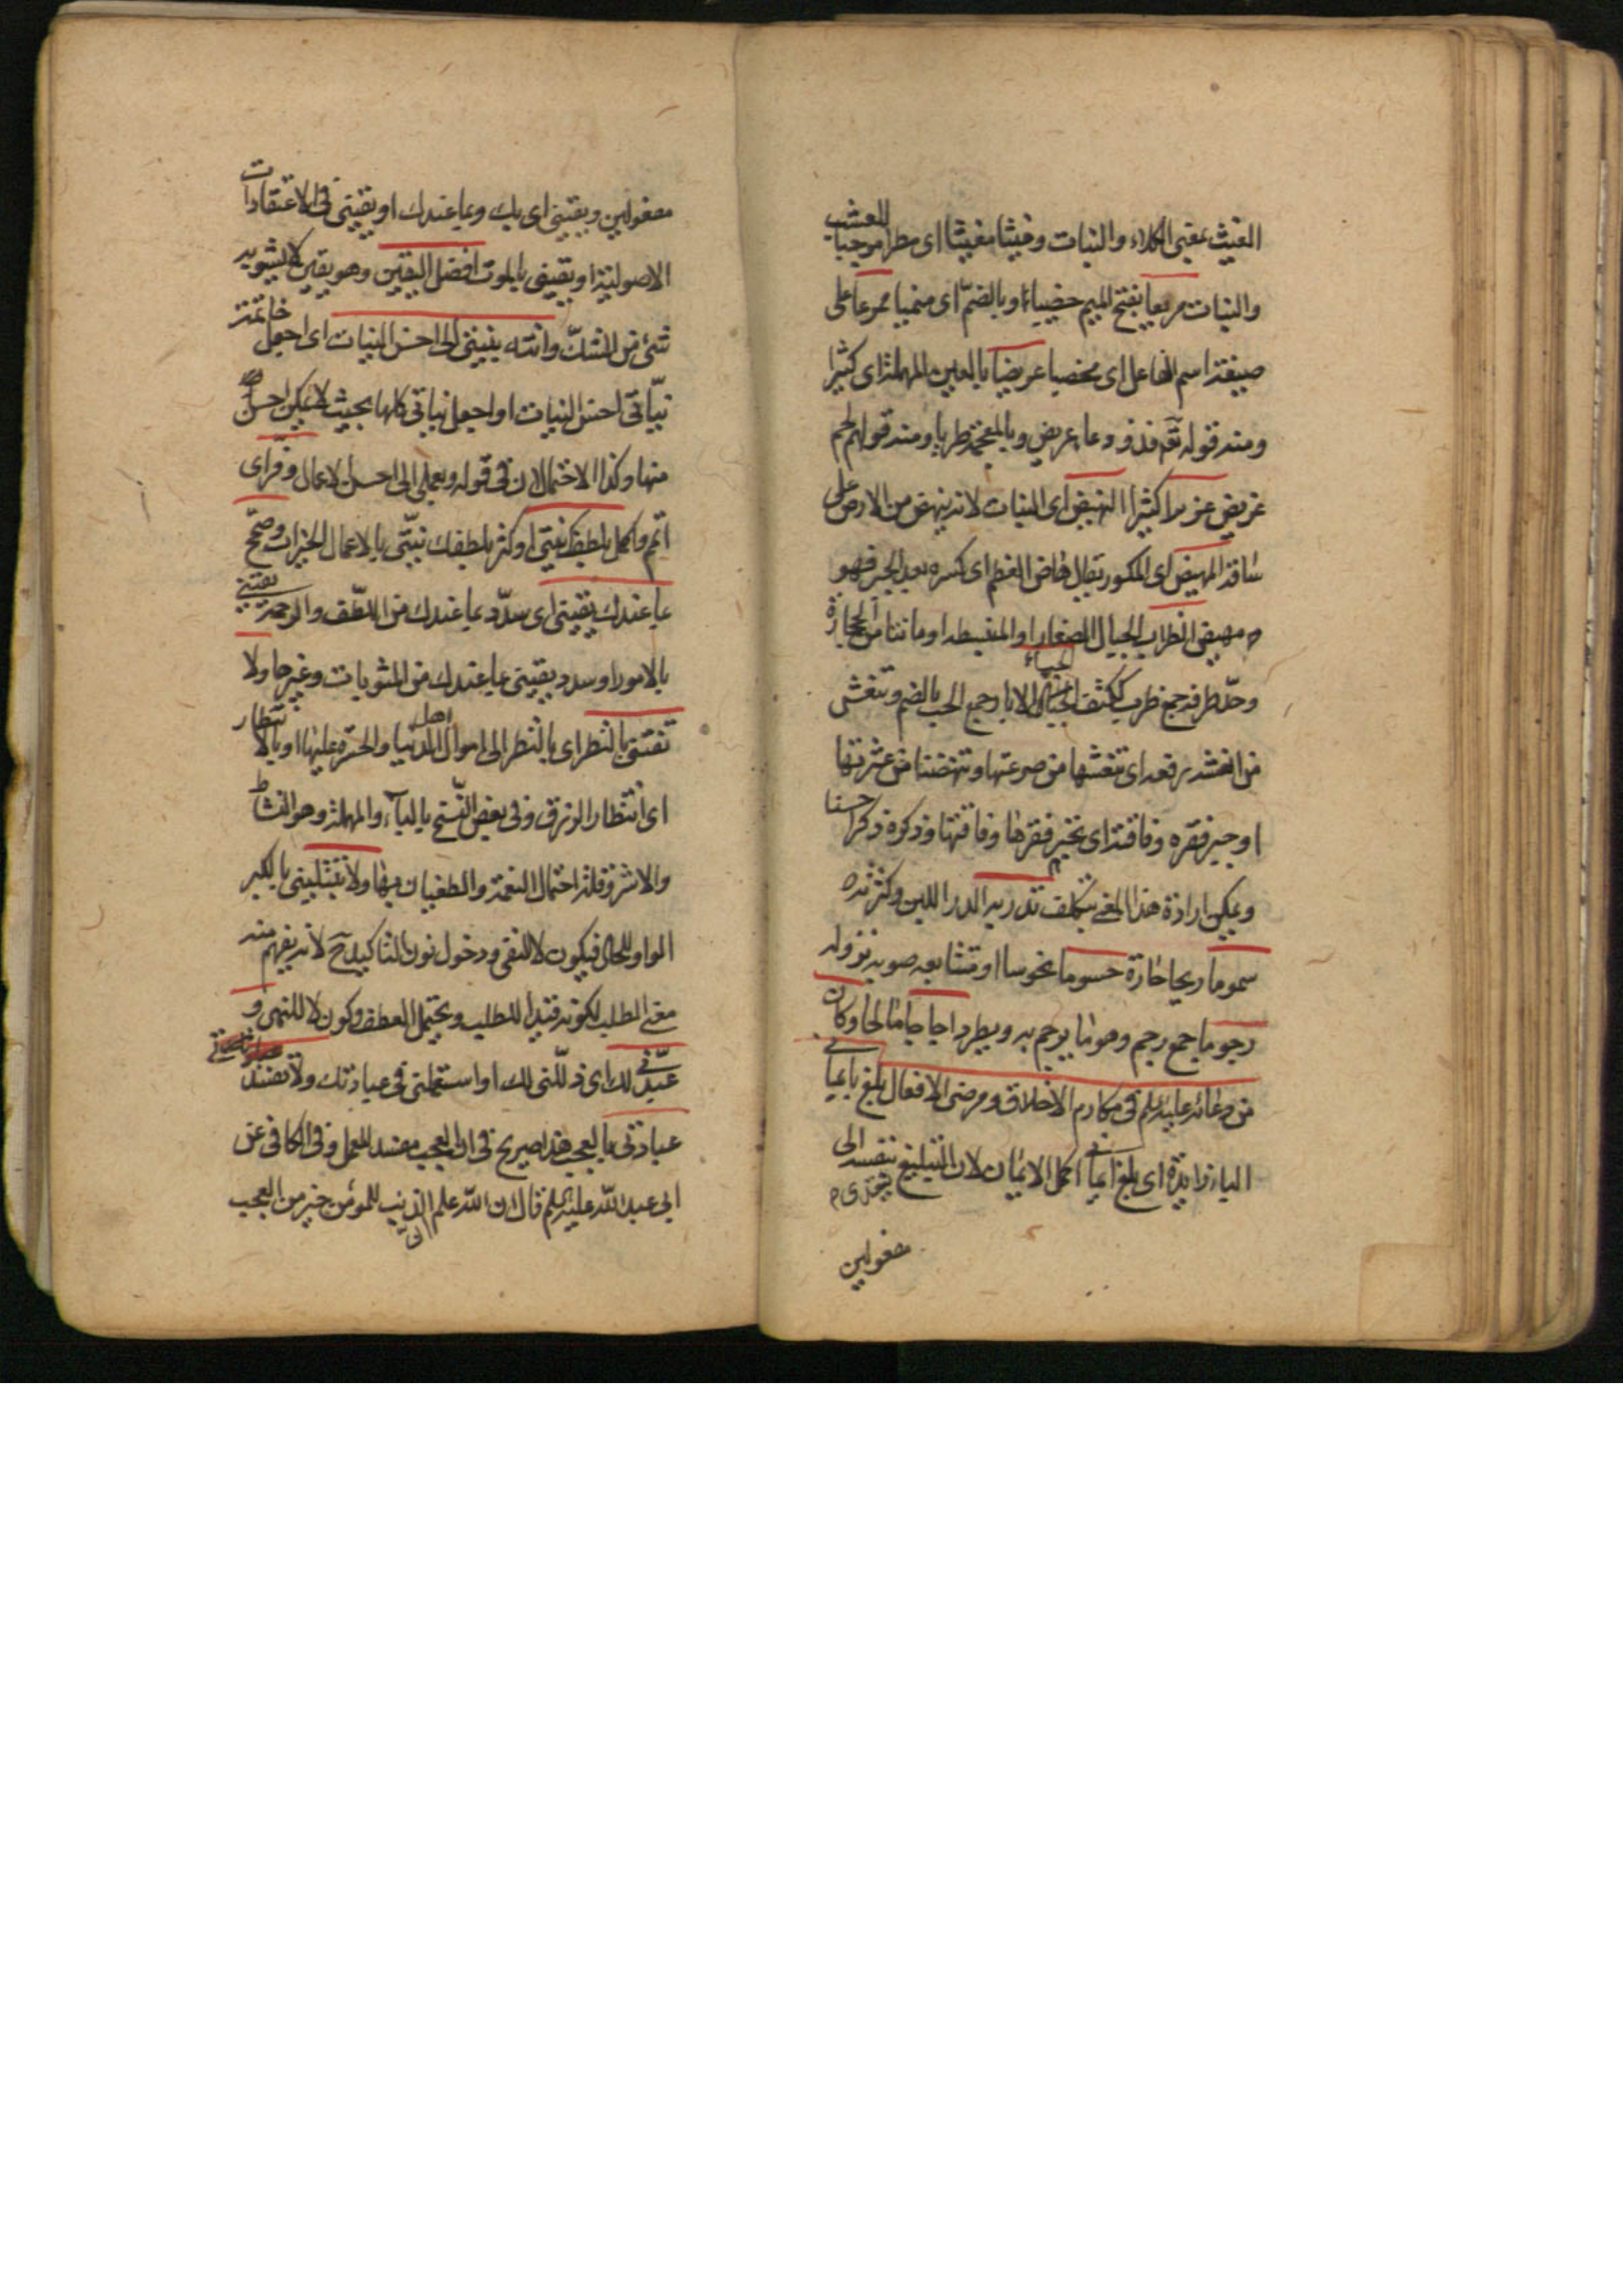 الغيث بمعنى الكلاء والنبات وغيثا مغيثا اى مطرا موجبا للعشب
والنبات مريعا بفتح الميم خصيبا او بالضم اى منميا ممرعا على
صيغة اسم الفاعل اى مخصبا عريضا بالعين المهملة اى كثيرا
ومنه قوله تعم فذو دعاء عريض وبالمعجمة طريا ومنه قولهم لحم
غريض غزيرا كثيرا النهيض اى النبات لانه ينهض من الارض على
ساقه المهيض اى المكسور يقال هاض العظم اى كسره بعد الجبر فهو
مهيض الظراب الجبال الصغار او المنبسطه او ما نتا من الحجارة
وحدّ طرفه جمع ظرب ككتف الجباب الابار جمع الجب بالضم وتنعشى
من انعشه رفعه اى تنعشها من صرعتها وتنهضنا من عثرتها
او جبر فقره وفاقته اى تجبر فقرها وفاقتها وذكره ذكرا حسنا
ويمكن ارادة هذا المعنى بتكلف تدر به الدر اللبن وكثرته
سموما ريحا حارة حسوما نحوسا او متتابعه صوبه نزوله
رجوما جمع رجم وهو ما يرجم به ويطرد اجاجا مالحا وكان
من دعائه عليه السلم فى مكارم الاخلاق ومرضى الافعال بلغ بايمانى
الباء زايدة اى بلغ ايمانى اكمل الايمان لان التبليغ بنفسه يتعدى الى
مفعولين
مفعولين ويقينى اى بك وبما عندك او يقينى فى الاعتقادات
الاصولية او يقينى بالموت افضل اليقين وهو يقين لا يشوبه
شئ من الشك وانته بنيتى الى احسن النيات اى اجعل خاتمة
نيّاتى احسن النيات او اجعل نياتى كلها بحيث لا يمكن احسن
منها وكذا الاحتمالان فى قوله وبعملى الى احسن الاعمال وفر اى
اتم واكمل بلطفك نيتى او كثر بلطفك نيّتى بالاعمال الخيرات وصحح
بما عندك يقينى اى سدّد بما عندك من اللطف والرحمة يقينى
بالامور او سدد يقينى بما عندك من المثوبات وغيرها ولا
تفتنى بالنظر اى بالنظر الى اموال اهل الدنيا والحسرة عليها او بالانتظار
اى انتظار الرزق وفى بعض النسخ بالباء والمهملة وهو النشاط
والاشر وقلة احتمال النعمة والطغيان بها ولا تبتلينى بالكبر
الواو للحال فيكون لا للنفى ودخول نون التاكيد ح لانه يفهم منه
معنى الطلب لكونه قيدا للطلب ويحتمل العطف وكون لا للنهى و
عبّدنى لك اى ذلّلنى لك او استعملنى فى عبادتك ولا تفسد
عبادتى بالعجب هذا صريح فى ان العجب مفسد للعمل وفى الكافى عن
ابى عبد الله عليه السلم قال ان الله علم ان الذنب للمؤمن خير من العجب